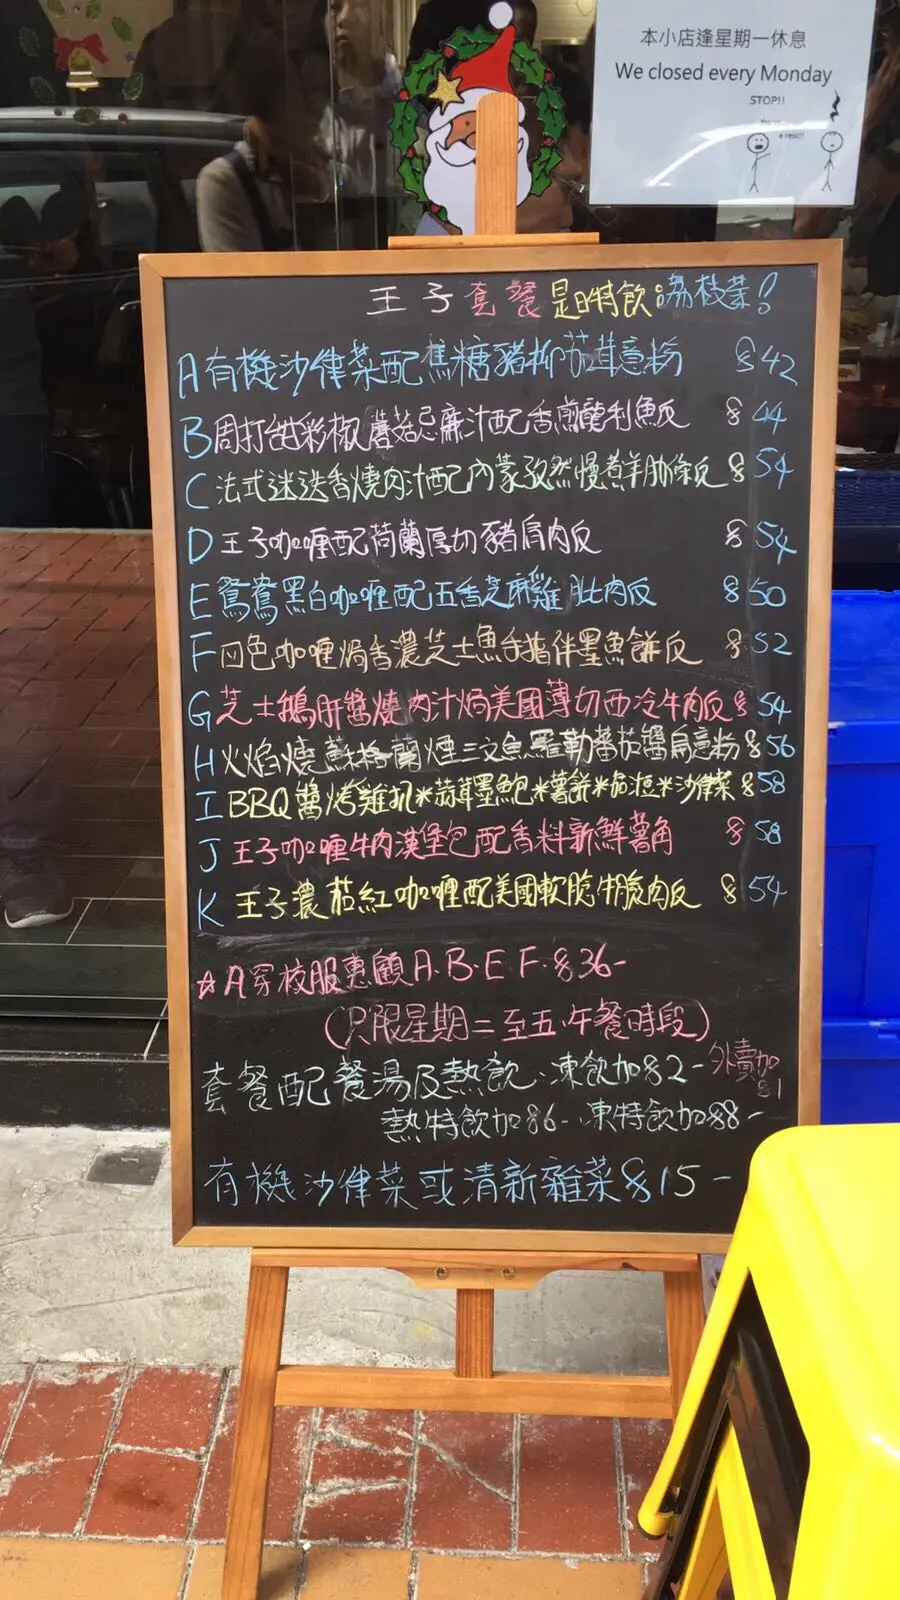 本小店逢星期一休息
We closed every Monday
STOP!!
a rest!!
王子套餐 是日特飲:荔枝茶!
A 有機沙律菜配焦糖豬柳茄茸意粉 $42
B 周打甜彩椒蘑菇忌廉汁配香煎龍利魚反 $44
C 法式迷迭香燒肉汁配內蒙孜然慢煮羊肋條反 $54
D 王子咖喱配荷蘭厚切豬肩肉反 $54
E 鴛鴦黑白咖喱配五香芝麻雞肶肉反 $50
F 四色咖喱焗香濃芝士魚手指伴墨魚餅反 $52
G 芝士鵝肝醬燒肉汁焗美國薄切西冷牛肉反 $54
H 火焰燒蘇格蘭煙三文魚羅勒番茄醬扁意粉 $56
I BBQ醬烤雞扒*蒜茸墨鮑*薯餅*茄湯*沙律菜 $58
J 王子咖喱牛肉漢堡包配香料新鮮薯角 $58
K 王子濃茄紅咖喱配美國軟脆牛脆肉反 $54
☆凡穿校服惠顧A.B.E F.$36-
(只限星期二至五.午餐時段)
套餐配餐湯及熱飲.凍飲加$2- 外賣加$1
熱特飲加$6-凍特飲加$8-
有機沙律菜或清新雜菜$15-